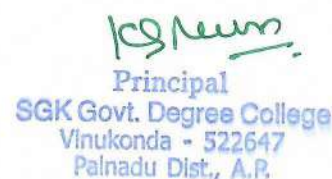 Principal
SGK Govt. Degree College
Vinukonda - 522647
Palnadu Dist., A.P.